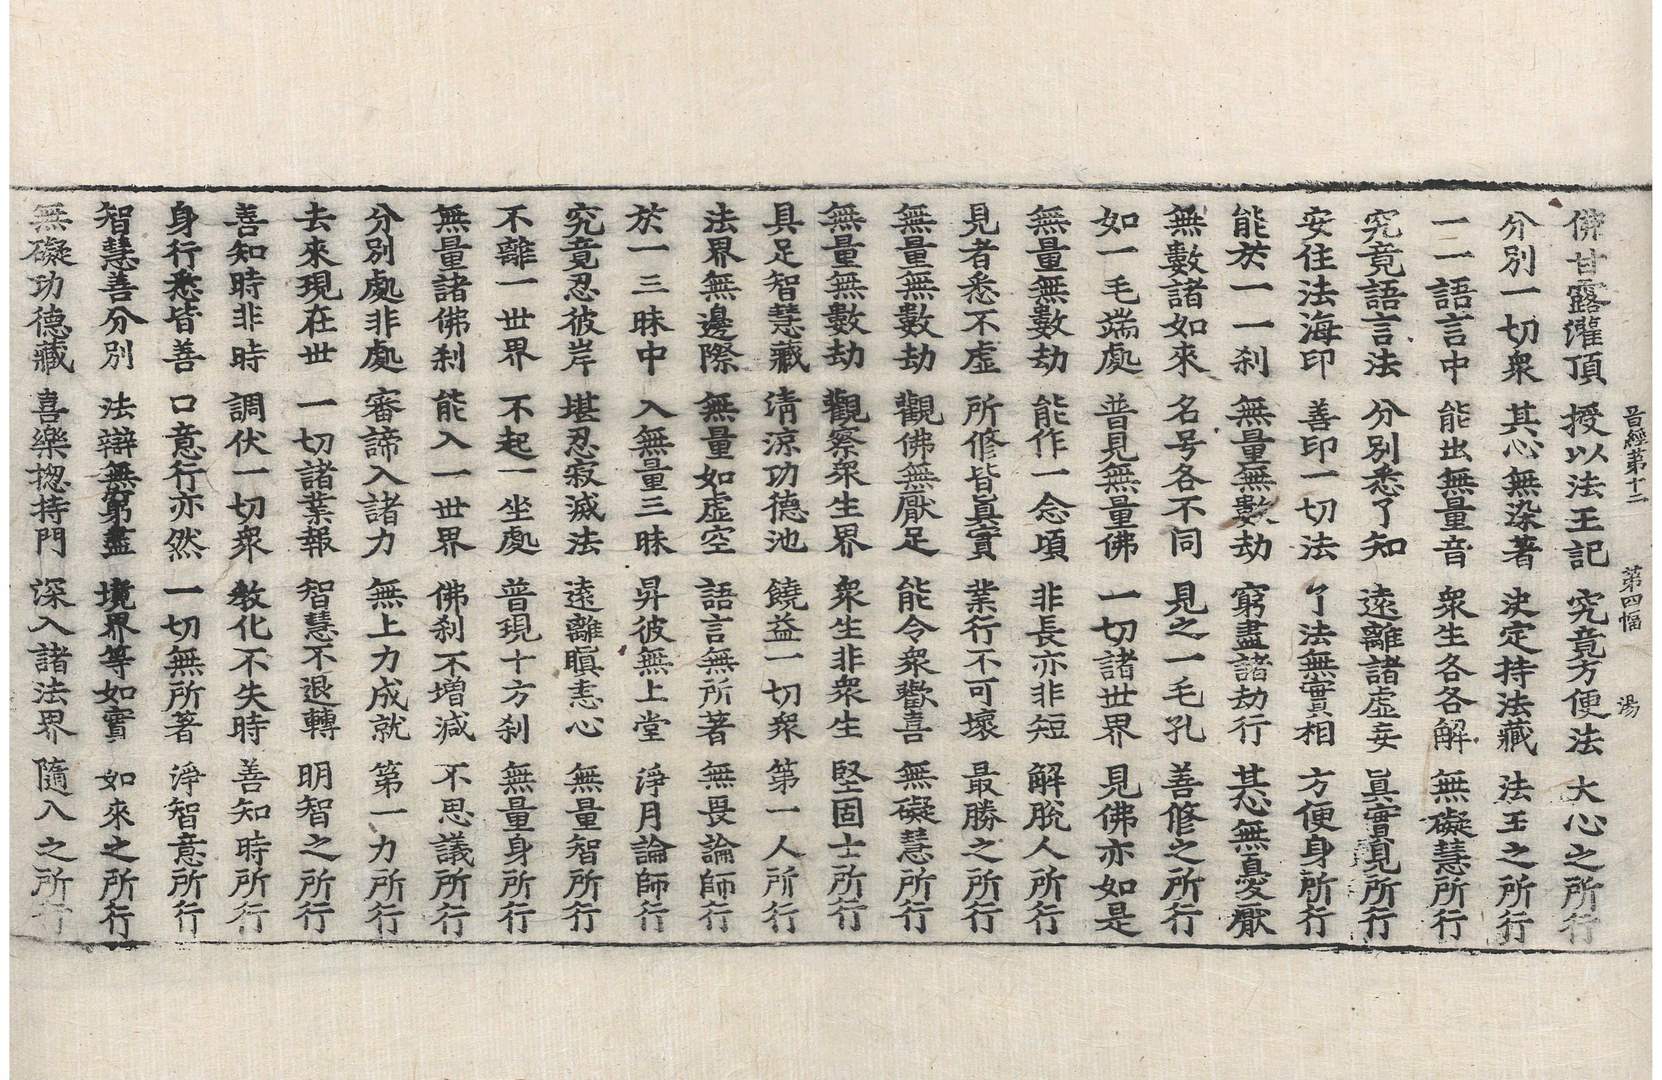 晉經第十二　第四幅　湯
佛甘露灌頂　授以法王記　究竟方便法　大心之所行
分別一切衆　其心無染著　決定持法藏　法王之所行
一一語言中　能出無量音　衆生各各解　無礙慧所行
究竟語言法　分別悉了知　遠離諸虛妄　眞實見所行
安住法海印　善印一切法　了法無實相　方便身所行
能於一一刹　無量無數劫　窮盡諸劫行　其心無憂厭
無數諸如來　名号各不同　見之一毛孔　善修之所行
如一毛端處　普見無量佛　一切諸世界　見佛亦如是
無量無數劫　能作一念頃　非長亦非短　解脫人所行
見者悉不虛　所修皆眞實　業行不可壞　最勝之所行
無量無數劫　觀佛無厭足　能令衆歡喜　無礙慧所行
無量無數劫　觀察衆生界　衆生非衆生　堅固士所行
具足智慧藏　清涼功德池　饒益一切衆　第一人所行
法界無邊際　無量如虛空　語言無所著　無畏論師行
於一三昧中　入無量三昧　昇彼無上堂　淨月論師行
究竟忍彼岸　堪忍寂滅法　遠離瞋恚心　無量智所行
不離一世界　不起一坐處　普現十方刹　無量身所行
無量諸佛刹　能入一世界　佛刹不增減　不思議所行
分別處非處　審諦入諸力　無上力成就　第一力所行
去來現在世　一切諸業報　智慧不退轉　明智之所行
善知時非時　調伏一切衆　教化不失時　善知時所行
身行悉皆善　口意行亦然　一切無所著　淨智意所行
智慧善分別　法辯無窮盡　境界等如實　如來之所行
無礙功德藏　喜樂揔持門　深入諸法界　隨入之所行